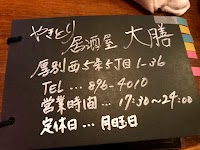 やきとり 居酒屋 大膳
厚別西5条5丁目1-36
TEL... 896-4010
営業時間...17:30~24:00
定休日...月曜日